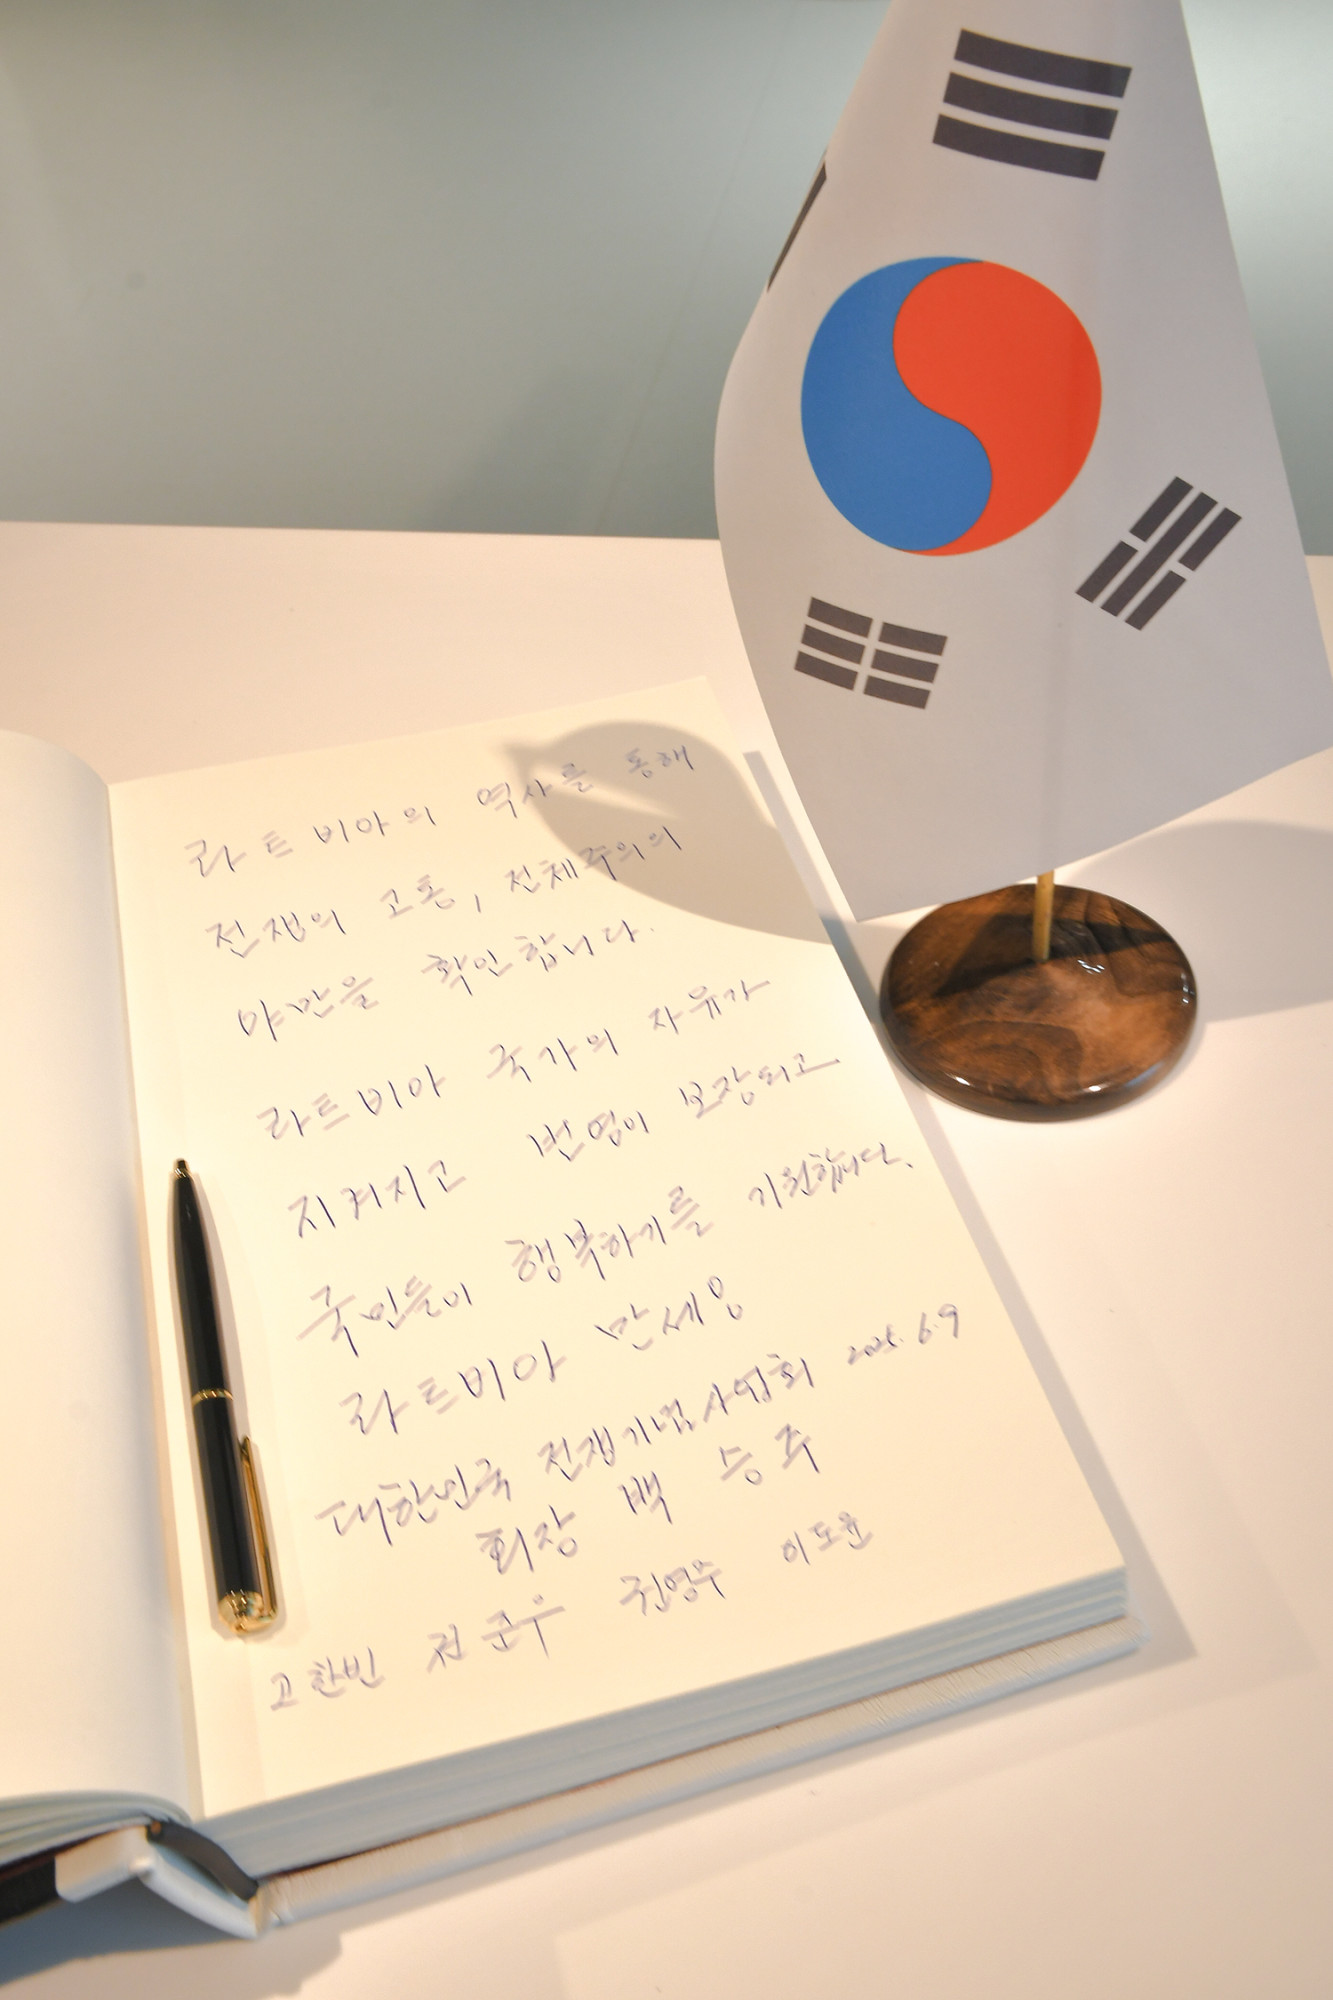 라트비아의 역사를 통해
전쟁의 고통, 전체주의의
야만을 확인합니다.
라트비아 국가의 자유가
지켜지고 번영이 보장되고
국민들이 행복하기를 기원합니다.
라트비아 만세임
대한민국 전쟁기념사업회 2025. 6. 9
회장 백승주
고한빈 전준우 권영우 이도윤